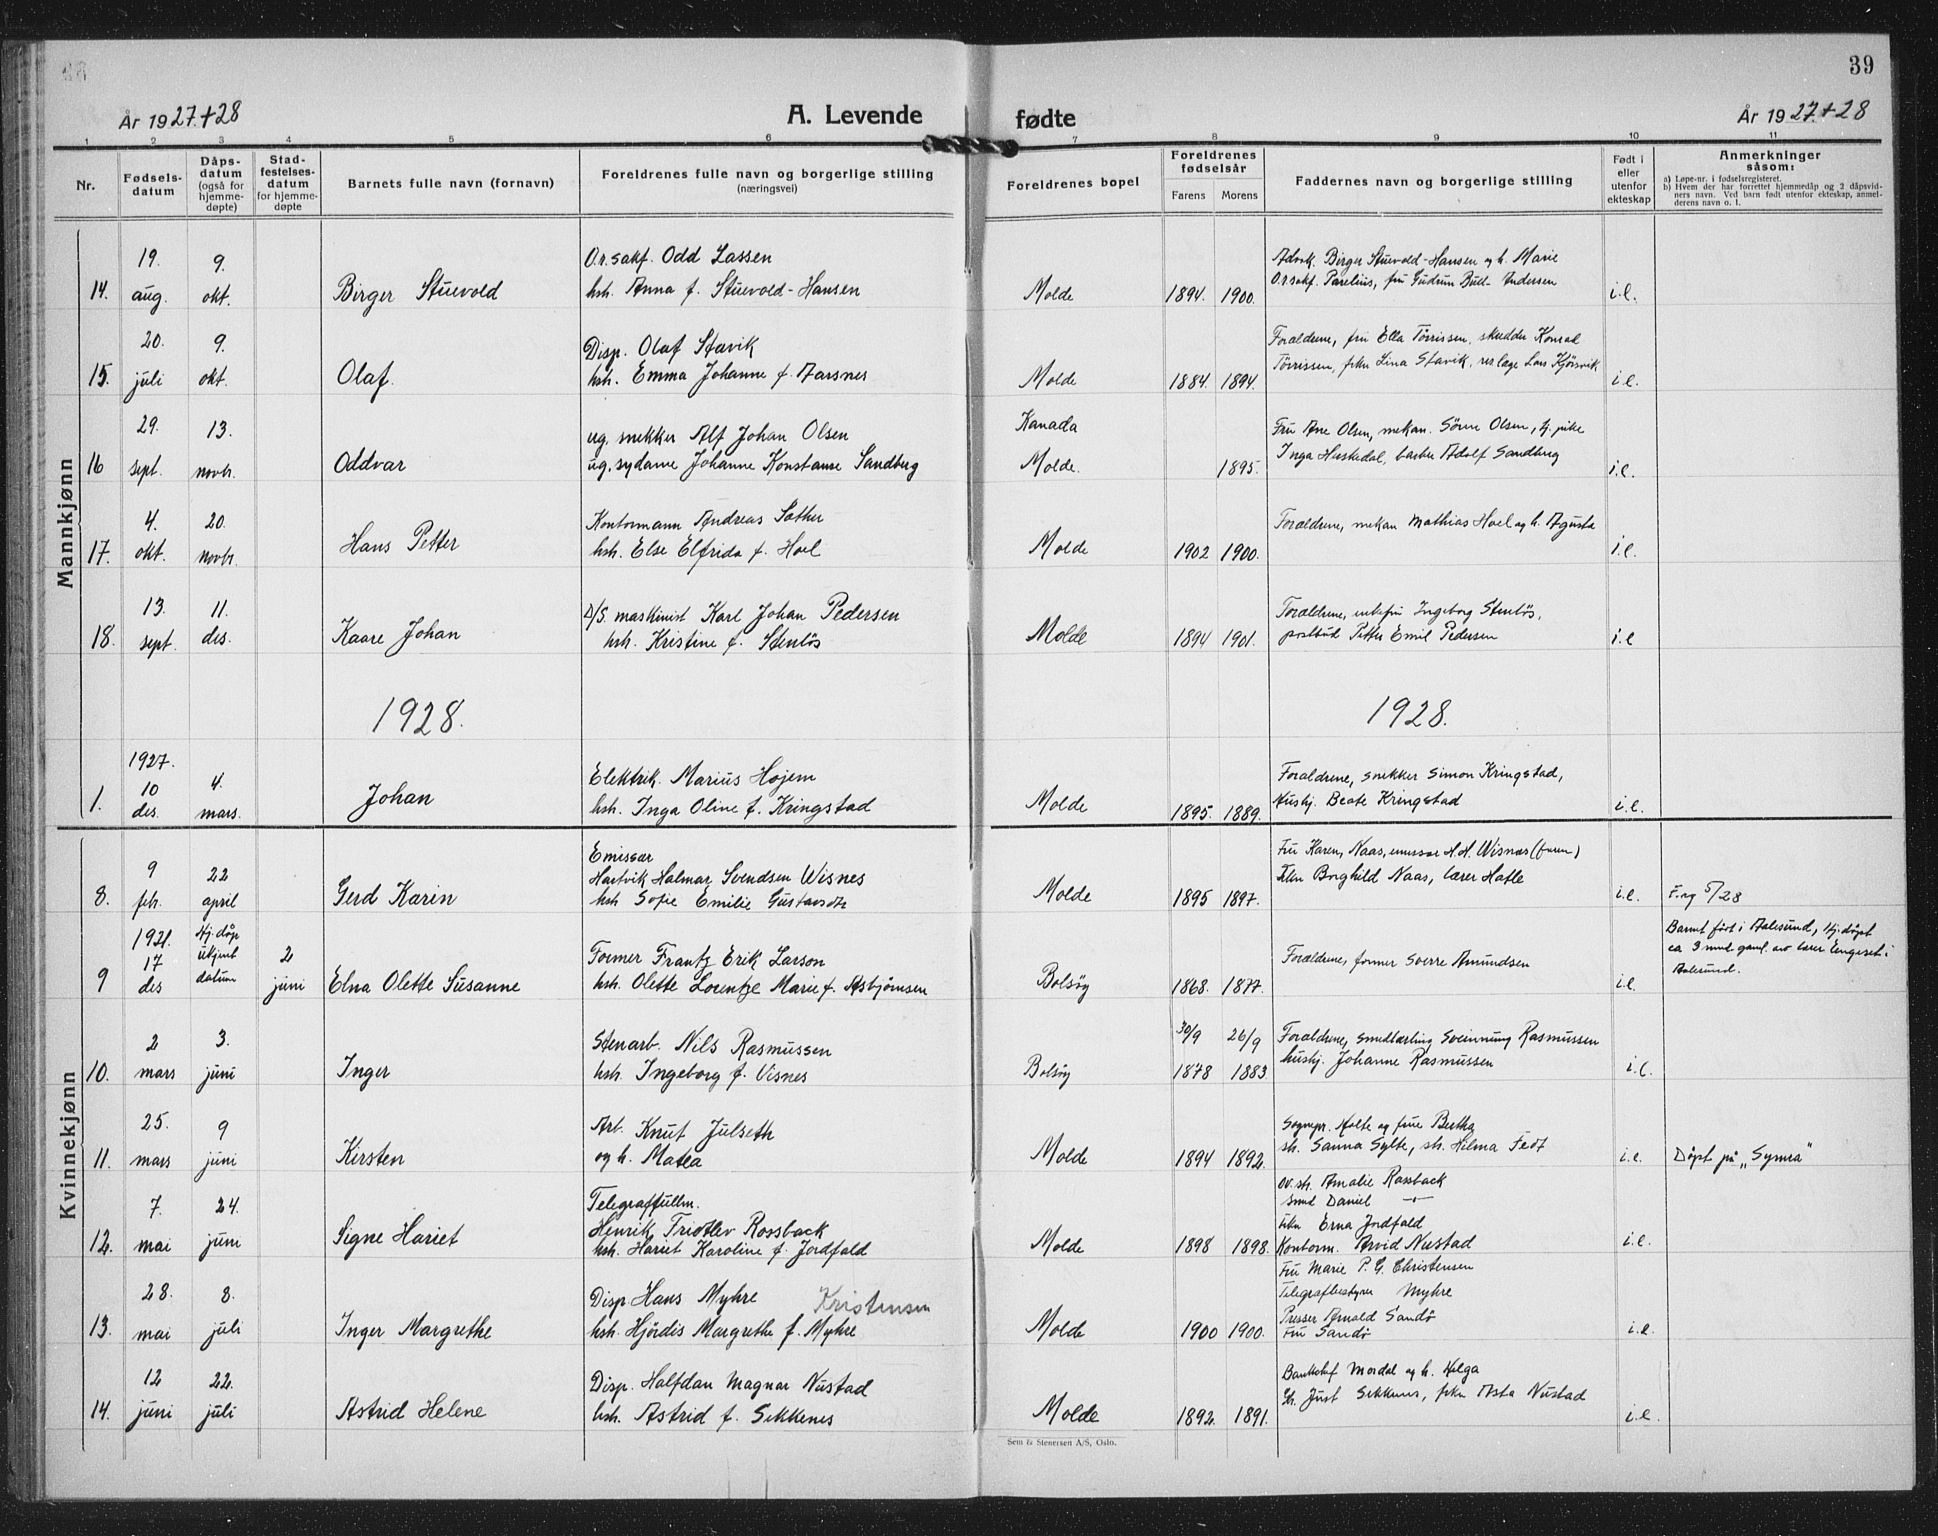 39
År 1927+28
A. Levende
fødte
År 1927+28
1 2 3 4 5 6 7 8 9 10 11
Nr.
Fødsels-
datum
Dåps-
datum
(også for
hjemme-
døpte)
Stad-
festelses-
datum
for hjemme-
døpte
Barnets fulle navn (fornavn)
Foreldrenes fulle navn og borgerlige stilling
(næringsvei)
Foreldrenes bopel
Foreldrenes
fødselsår
Farens Morens
Faddernes navn og borgerlige stilling
Født i
eller
utenfor
ekteskap
Anmerkninger
såsom:
a) Løpe-nr. i fødselsregisteret.
b) Hvem der har forrettet hjemmedåp og 2 dåpsvid-
ners navn. Ved barn født utenfor ekteskap, anmel-
derens navn o. l.
Mannkjønn
14. 19. aug. 9. okt. Birger Stuevold
O.r.sakf. Odd Lassen
hstr. Anna f. Stuevold-Hansen
Molde 1894. 1900.
Advok. Birger Stuevold-Hansen og h. Marie
O.r.sakf. Parelius, fru Gudrun Bull-Andersen
i.e.
15. 20. juli 9. okt. Olaf.
Disp. Olaf Stavik
hstr. Emma Johanne f. Aarsnes
Molde 1884. 1894.
Foreldrene, fru Ella Tørrissen, skredder Konrad
Tørrissen, frkn Lina Stavik, res.læge Lars Kjørsvik
i.e.
16 29. sept. 13. novbr. Oddvar
ug. snekker Alf Johan Olsen
ug. sydame Johanne Konstanse Sandberg
Kanada
Molde. 1895.
Fru Ane Olsen, mekan. Sören Olsen, tj. pike
Inga Haskedal, barber Adolf Sandberg
i.e.
17. 4. okt. 20. novbr. Hans Petter
Kontormann Andreas Sæther
hstr. Else Elfrida f. Hoel
Molde 1902 1900.
Foreldrene, mekan Mathias Hoel og h. Agusta
i.e.
18. 13. sept. 11. des. Kaare Johan
D/S. maskinist Karl Johan Pedersen
hstr. Kristine f. Stenløs
Molde 1894 1901.
Foreldrene, enkefru Ingeborg Stenløs,
postbud Petter Emil Pedersen
i.e
1928.
1928.
1. 1927. 10 des. 4. mars. Johan
Elektrik. Marius Højem
hstr. Inga Oline f. Kringstad
Molde 1895. 1889.
Foreldrene, snekker Simon Kringstad,
Hushj. Beate Kringstad
i.e.
Kvinnekjønn
8. 9 feb. 22 april Gerd Karin
Emissær
Hartvik Halmar Svendsen Wisnes
hstr Sofie Emilie Gustavsdtr
Molde 1895 1897.
Fru Karen, Naas, emissær H.H. Wisnæs (faren)
Frkn Borghild Naas, lærer Hatle
i.e.
F.reg 5/28
9 1921. 17 des Hj.døp
ukjent
datum 2 juni Elna Olette Susanne
Former Frantz Erik Larson
hstr. Olette Lorentze Marie f. Asbjørnsen
Bolsøy 1868. 1877.
Foreldrene, former Sverre Amundsen
i.e.
Barnet født i Aalesund, Hj.døpt
ca 3 mnd gaml. av lærer Engeset i
Aalesund.
10. 2 mars 3. juni Inger
Stenarb. Nils Rasmussen
hstr. Ingeborg f. Visnes
Bolsøy 30/9 1878 26/9 1883.
Foreldrene, smedlærling Sveinnung Rasmussen
hushj. Johanne Rasmussen
i.e.
11. 25. mars 9 juni Kirsten
Arb. Knut Julseth
og h. Matea
Molde 1894 1892.
Sognepr. Holte og frue Bertha
str. Sanna Sylte, str. Hilma Fedt
i.e.
Døpt på „Symra"
12. 7. mai 24. juni Signe Hariet
Telegraffullm.
Henrik Friotlev Rossback
hstr. Hariet Karoline f. Jordfald
Molde 1898 1898.
ov.str. Amalie Rossback
smed Daniel —"—
frkn Erna Jordfald
Kontorm. Arvid Nustad
i.e.
13. 28. mai 8. juli Inger Margrethe
Disp. Hans Myhre Kristensen
hstr. Hjördis Margrethe f. Myhre
Molde 1900 1900.
Fru Marie P. G. Christensen
Telegrafbestyrer Myhre
Presser Arnold Sandö
Fru Sandö
i.e.
14. 12 juni 22. juli Astrid Helene
Disp. Halfdan Magnar Nustad
hstr. Astrid f. Sekkenes
Molde 1892. 1891.
Bankchef Mordal og h. Helga
Hr. Just Sekkenes, frkn Asta Nustad
i.e.
Sem & Stenersen A/S, Oslo.